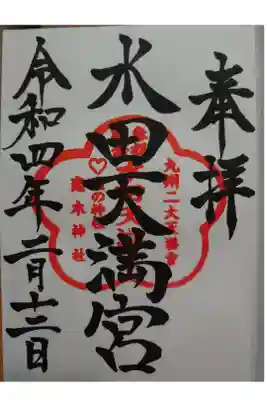 奉拝
九州二大天満宮
水田天満宮
の神社
恋木神社
令和四年二月十三日